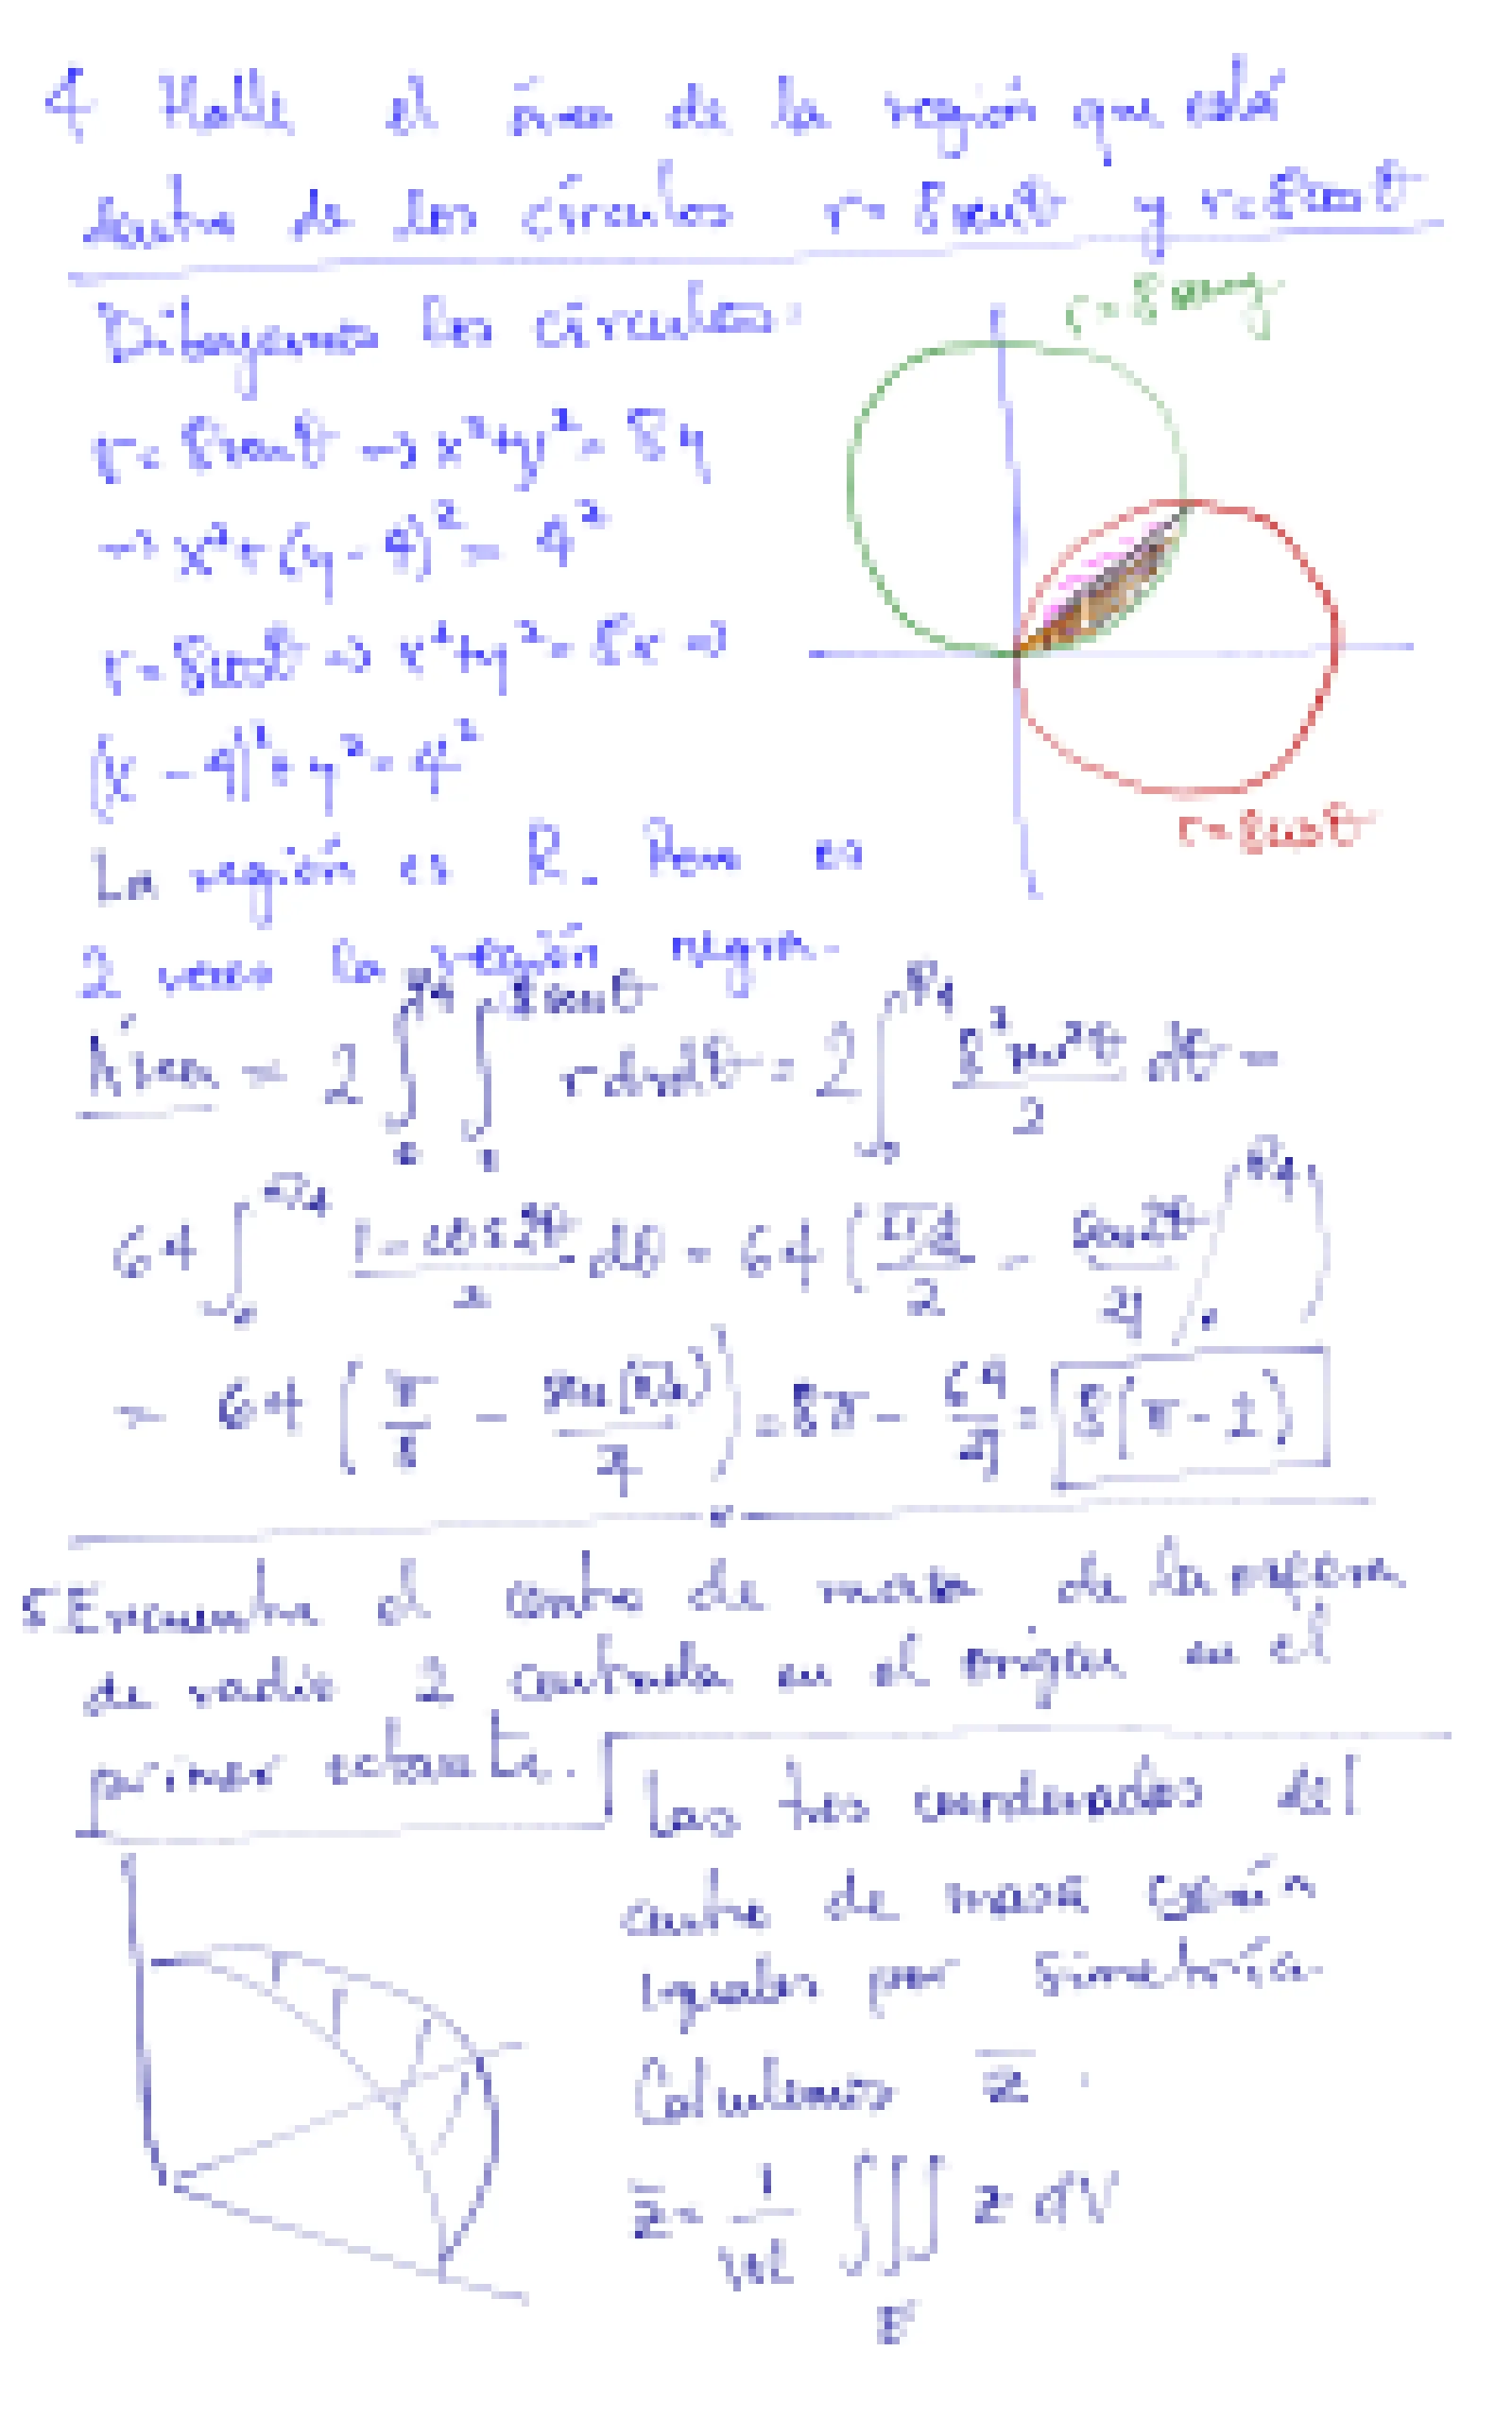 4 Halle el área de la región que está
dentro de los círculos r = 8senθ y r = 8cosθ
Dibujamos los círculos.
r = 8senθ
r = 8senθ → x²+y² = 8y
→ x²+(y-4)² = 4²
r = 8cosθ → x²+y² = 8x →
(x-4)²+y² = 4²
r = 8cosθ
La región es R. Pero es
2 veces la región negra.
Área = 2 ∫₀^{π/4} ∫₀^{8senθ} r dr dθ = 2 ∫₀^{π/4} 8²sen²θ/2 dθ =
64 ∫₀^{π/4} (1-cos2θ)/2 dθ = 64 ( (π/4)/2 - sen2θ/4 /₀^{π/4} )
= 64 ( π/8 - sen(π/2)/4 ) = 8π - 64/4 = 8(π-2)
5 Encuentra el centro de masa de la esfera
de radio 2 centrada en el origen en el
primer octante.
Las tres coordenadas del
centro de masa serán
iguales por simetría
Calculemos z̄.
z̄ = 1/Vol ∭_E z dV